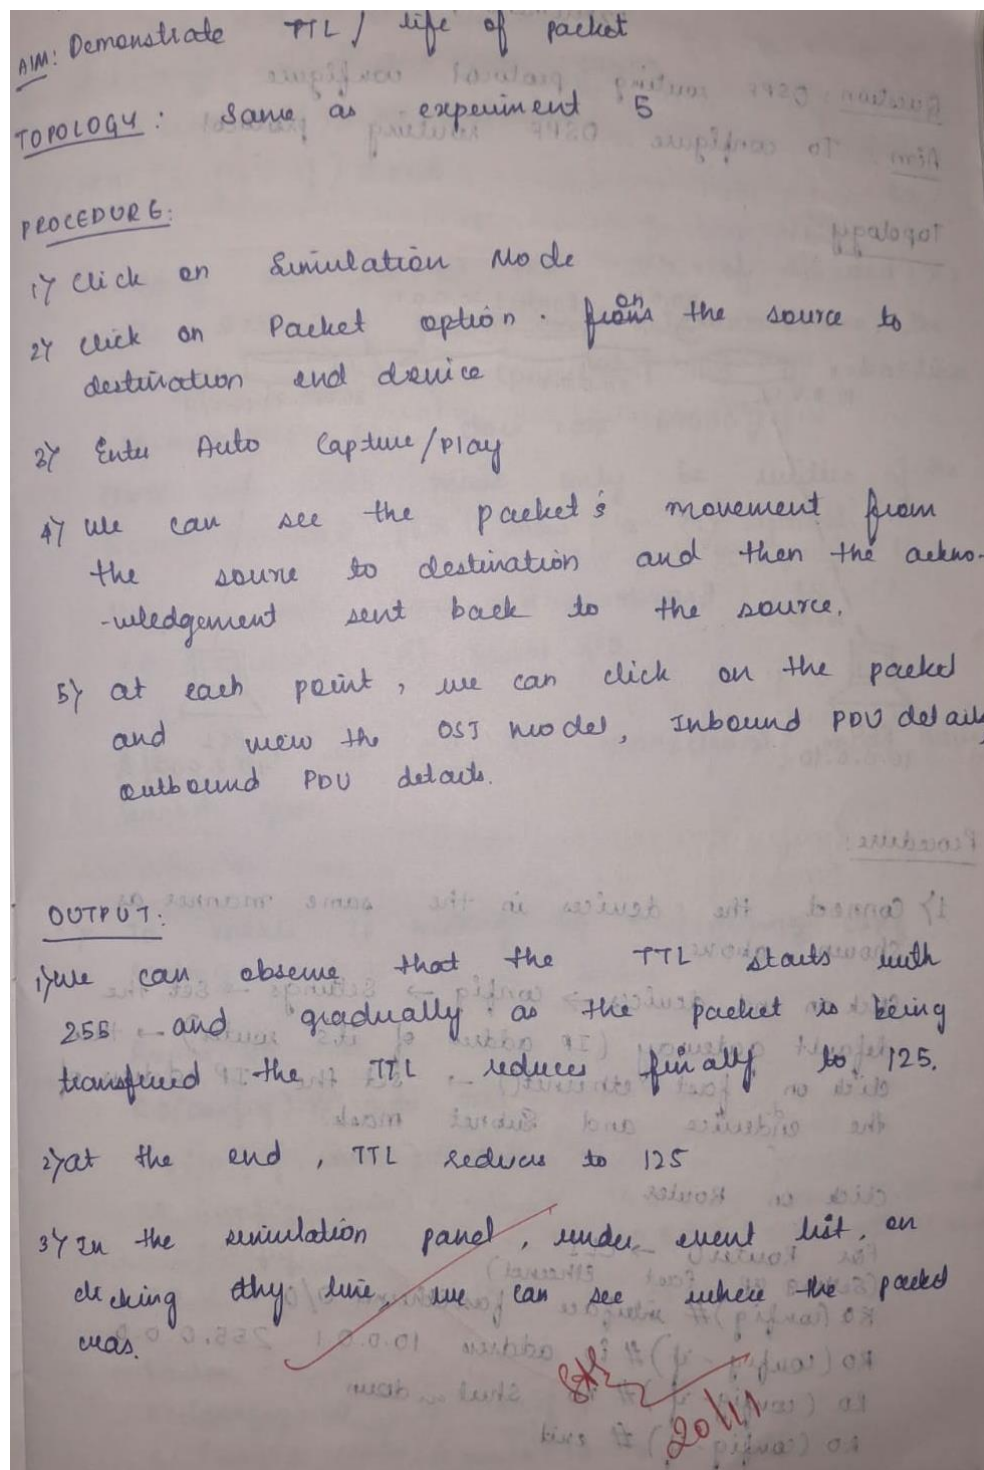 AIM: Demonstrate TTL / life of packet
TOPOLOGY: Same as experiment 5
PROCEDURE:
1) Click on Simulation Mode
2) Click on Packet option. from on the source to
destination end device
3) Enter Auto Capture/Play
4) We can see the packet's movement from
the source to destination and then the ackno-
-wledgement sent back to the source.
5) at each point, we can click on the packet
and view the OSI model, Inbound PDU details
outbound PDU details.
OUTPUT:
1) We can observe that the TTL starts with
255 and gradually as the packet is being
transfered the TTL reduces finally to 125.
2) at the end, TTL reduces to 125
3) In the simulation panel, under event list, on
clicking thy line, we can see where the packet
was.
20/11